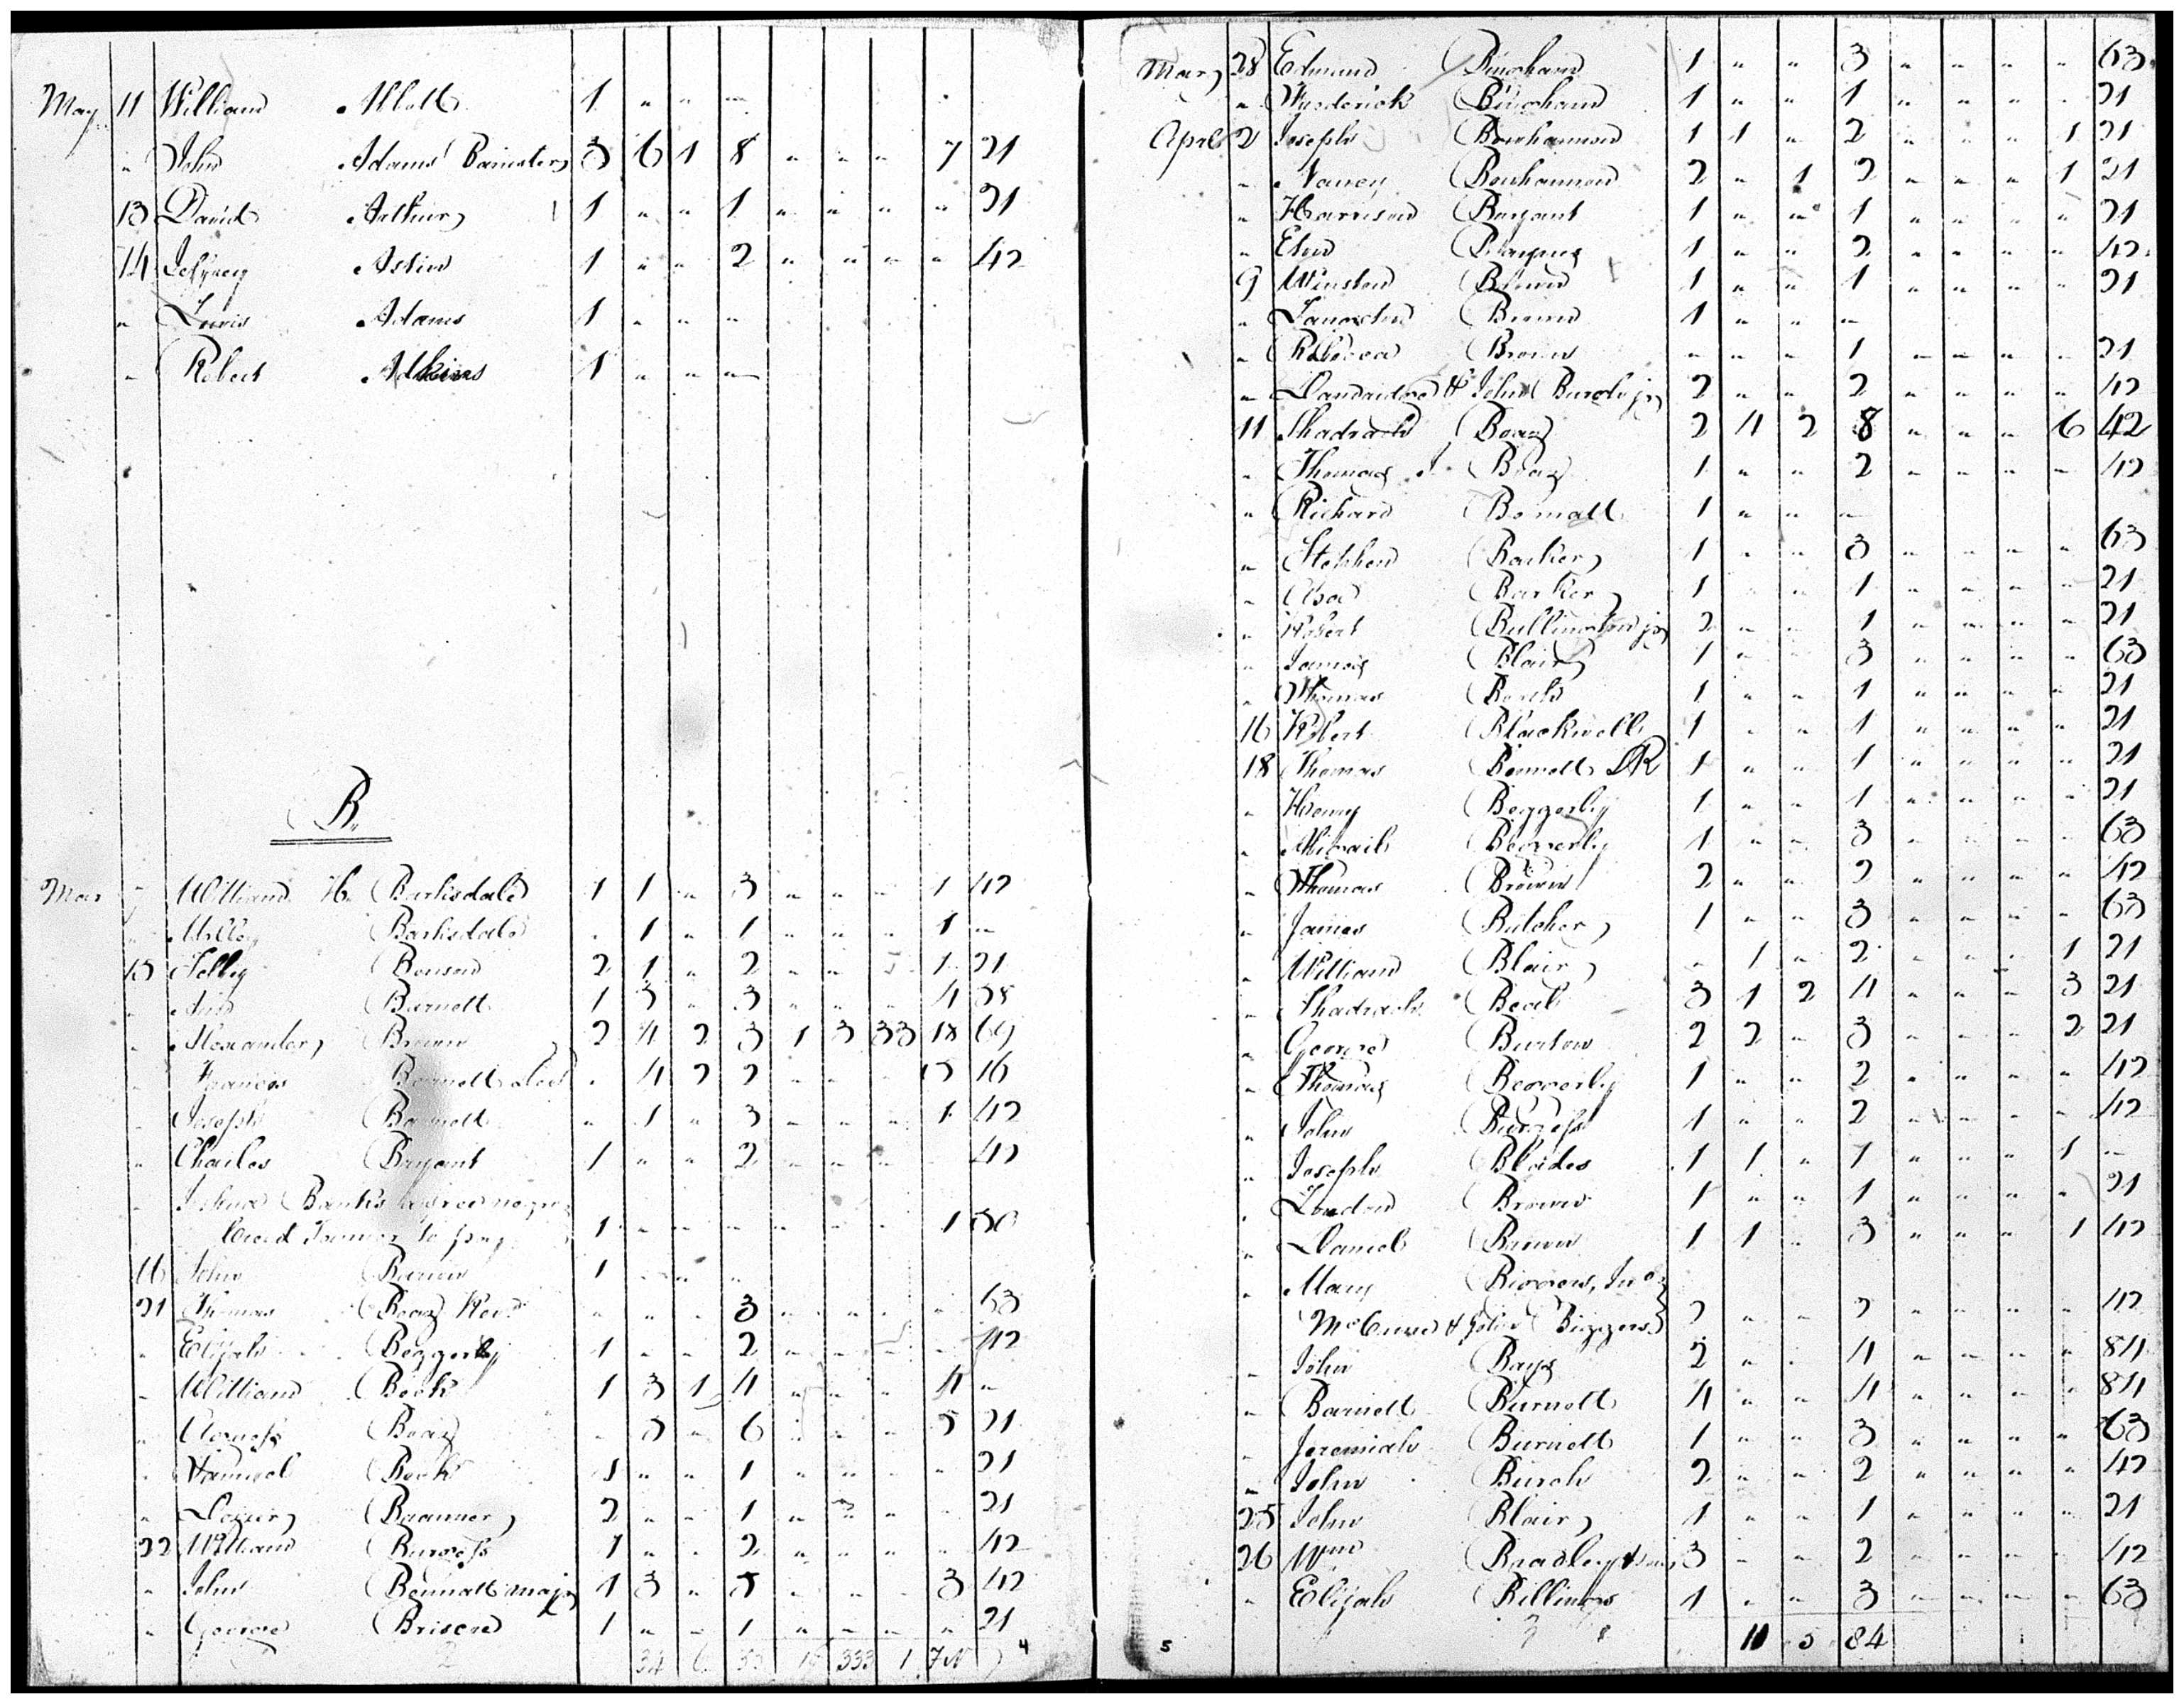 May 11 William Allett 1 " " "
" John Adams Banister 3 6 1 8 " " " 7 21
13 David Arthur 1 " " 1 " " " " 21
14 Jeffrey Astin 1 " " 2 " " " " 42
" Lewis Adams 1 " " "
" Robert Adkins 1 " " "
B.
Mar 7 William H. Barksdale 1 1 " 3 " " " 1 42
" Milley Barksdale " 1 " 1 " " " 1 "
15 Benson 2 1 " 2 " " " 1 21
" Ann Barnett 1 3 " 3 " " " 4 58
" Alexander Brown 2 4 2 3 1 3 33 18 69
" Francis Bennett 4 2 2 16
" Joseph Bennett " 1 " 3 " " " 1 42
" Charles Bryant 1 " " 2 " " " 42
" Joshua Banks a free negro
1 " " " " " " 1 50
16 John 1 " " "
21 Thomas Boaz Revd " " " 3 " " " " 63
" Elijah Beggerly 1 " " 2 " " " " 42
" William Beck 1 3 1 4 " " " 4 "
" Agness Boaz " 5 " 6 " " " 5 21
" Samuel Beck 1 " " 1 " " " " 21
" 2 " " 1 " " " 21
22 William Burgess 1 " " 2 " " " " 42
" John Bennett majr 1 3 " 5 " " " 3 42
" George Briscoe 1 " " 1 " " " " 21
2 34 6 333 1 4
Mar 28 Edmund Bingham 1 " " 3 " " " " 63
" Frederick Bingham 1 " " 1 " " " " 21
April 2 Joseph Bowhannon 1 1 " 2 " " " 1 21
" Nancy Bouhannon 2 " 1 2 " " " 1 21
" Harrison Bryant 1 " " 1 " " " " 21
" 1 " " 2 " " " " 42
9 Winston Brown 1 " " 1 " " " " 21
" Langston Brown 1 " " "
" Rebecca Brown " " " 1 " " " " 21
" Dandridge & John Burch jr 2 " " 2 " " " " 42
11 Shadrach Boaz 2 4 2 8 " " " 6 42
" Thomas J. Boaz 1 " " 2 " " " " 42
" Richard Bomatt 1 " " "
" Stephen Barker 1 " " 3 " " " " 63
" Barker 1 " " 1 " " " " 21
" Robert Bullington jr 2 " " 1 " " " " 21
" James Blair 1 " " 3 " " " " 63
" Thomas 1 " " 1 " " " " 21
16 Robert Blackwell 1 " " 1 " " " " 21
18 Thomas Bennett DR 1 " " 1 " " " " 21
" Henry Beggerly 1 " " 1 " " " " 21
" Beggerly 1 " " 3 " " " " 63
" Thomas Brown 2 " " 2 " " " " 42
" James Butcher 1 " " 3 " " " " 63
" William Blair " 1 " 2 " " " 1 21
" Shadrach Beal 3 1 2 4 " " " 3 21
" George Burton 2 2 " 3 " " " 2 21
" Thomas Beggerly 1 " " 2 " " " " 42
" John Burgess 1 " " 2 " " " " 42
" Joseph Blades 1 1 " 1 " " " 1 "
" London Brown 1 " " 1 " " " " 21
" Daniel Brown 1 1 " 3 " " " 1 42
" Mary Biggers, Jno
McCune & John Biggers 2 " " 2 " " " " 42
" John Bays 2 " " 4 " " " " 84
" Barnett Burnett 4 " " 4 " " " " 84
" Jeremiah Burnett 1 " " 3 " " " " 63
" John Burch 2 " " 2 " " " " 42
25 John Blair 1 " " 1 " " " " 21
26 Wm Bradley & son 3 " " 2 " " " " 42
" Elijah Billings 1 " " 3 " " " " 63
5 3 11 5 84